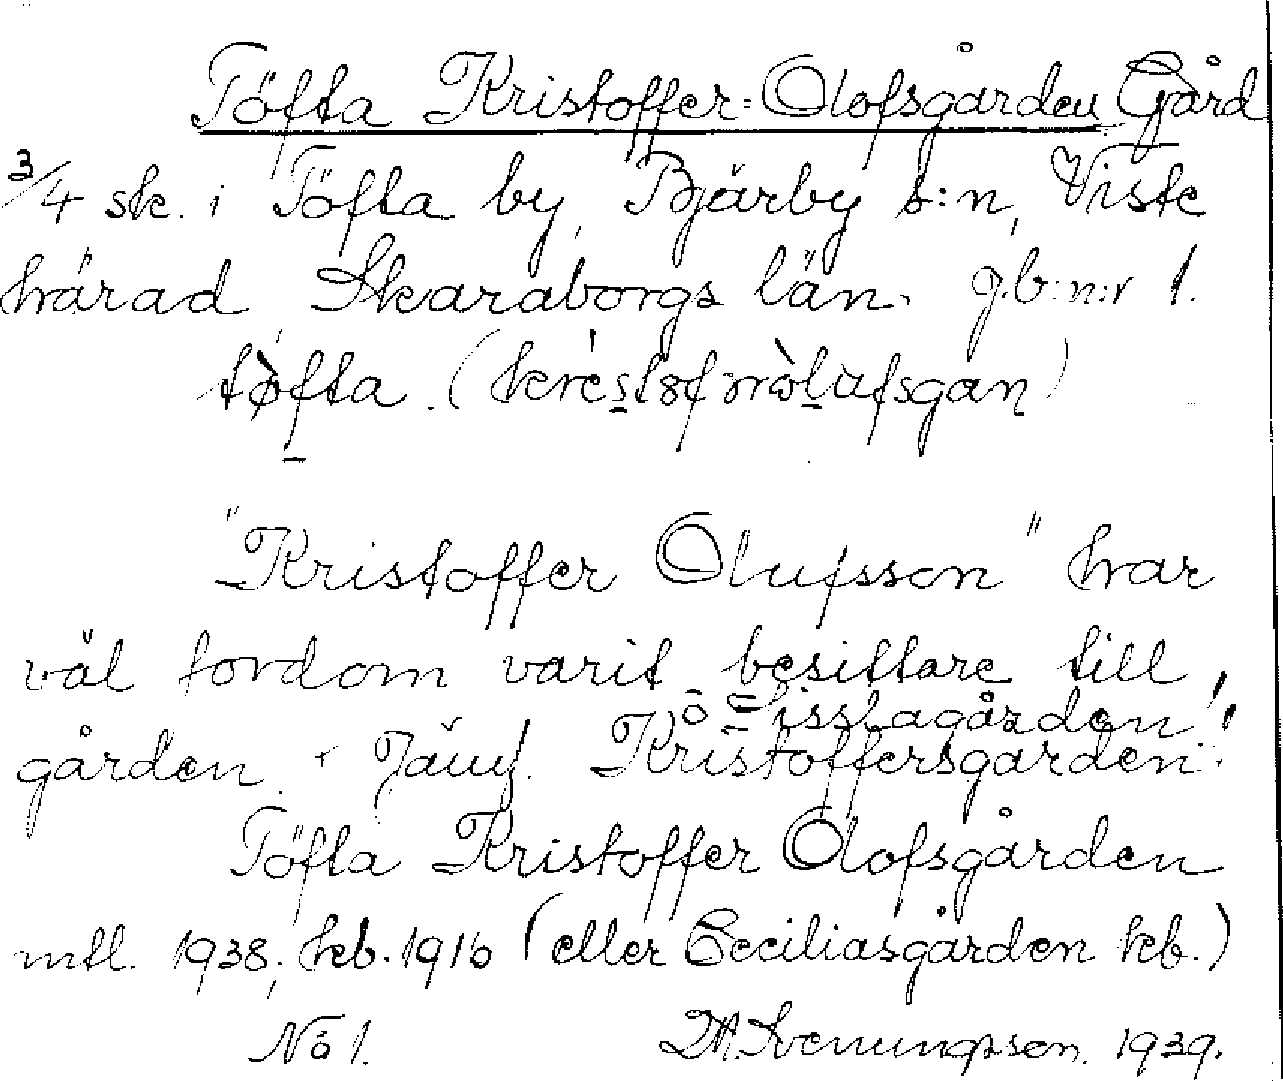 Töfta Kristoffer-Olofsgården Gård
3/4 sk. i Töfta by, Bjärby s:n, Viste
härad Skaraborgs län. j.b:n:r 1.
töfta. (
"Kristoffer Olufsson" har
väl fordom varit besittare till
gården. Jämf. Kristoffersgården
o Sisslagården
Töfta Kristoffer Olofsgården
mtl. 1938; kb. 1916 (eller Ceciliasgården kb.)
No 1. D.A. Svenungsson. 1939.